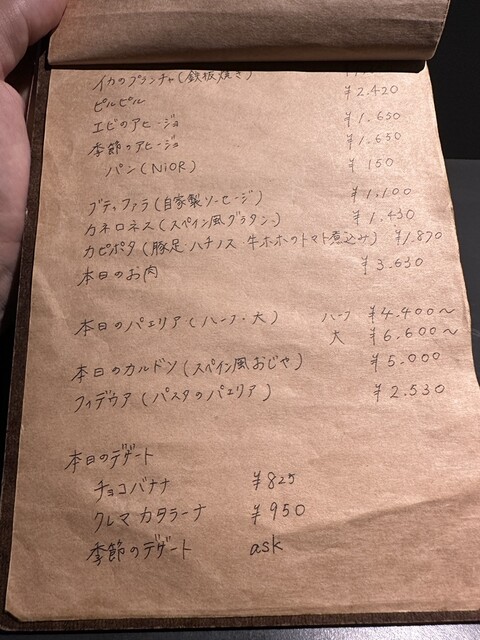 イカのプランチャ(鉄板焼き)
ピルピル ¥2.420
エビのアヒージョ ¥1.650
季節のアヒージョ ¥1.650
パン(NiOR) ¥150
ブティファラ(自家製ソーセージ) ¥1.100
カネロネス(スペイン風グラタン) ¥1.430
カピポタ(豚足・ハチノス・牛ホホのトマト煮込み) ¥1.870
本日のお肉 ¥3.630
本日のパエリア(ハーフ・大) ハーフ ¥4.400〜
大 ¥6.600〜
本日のカルドソ(スペイン風おじや) ¥5.000
フィデウア(パスタのパエリア) ¥2.530
本日のデザート
チョコバナナ ¥825
クレマカタラーナ ¥950
季節のデザート ask